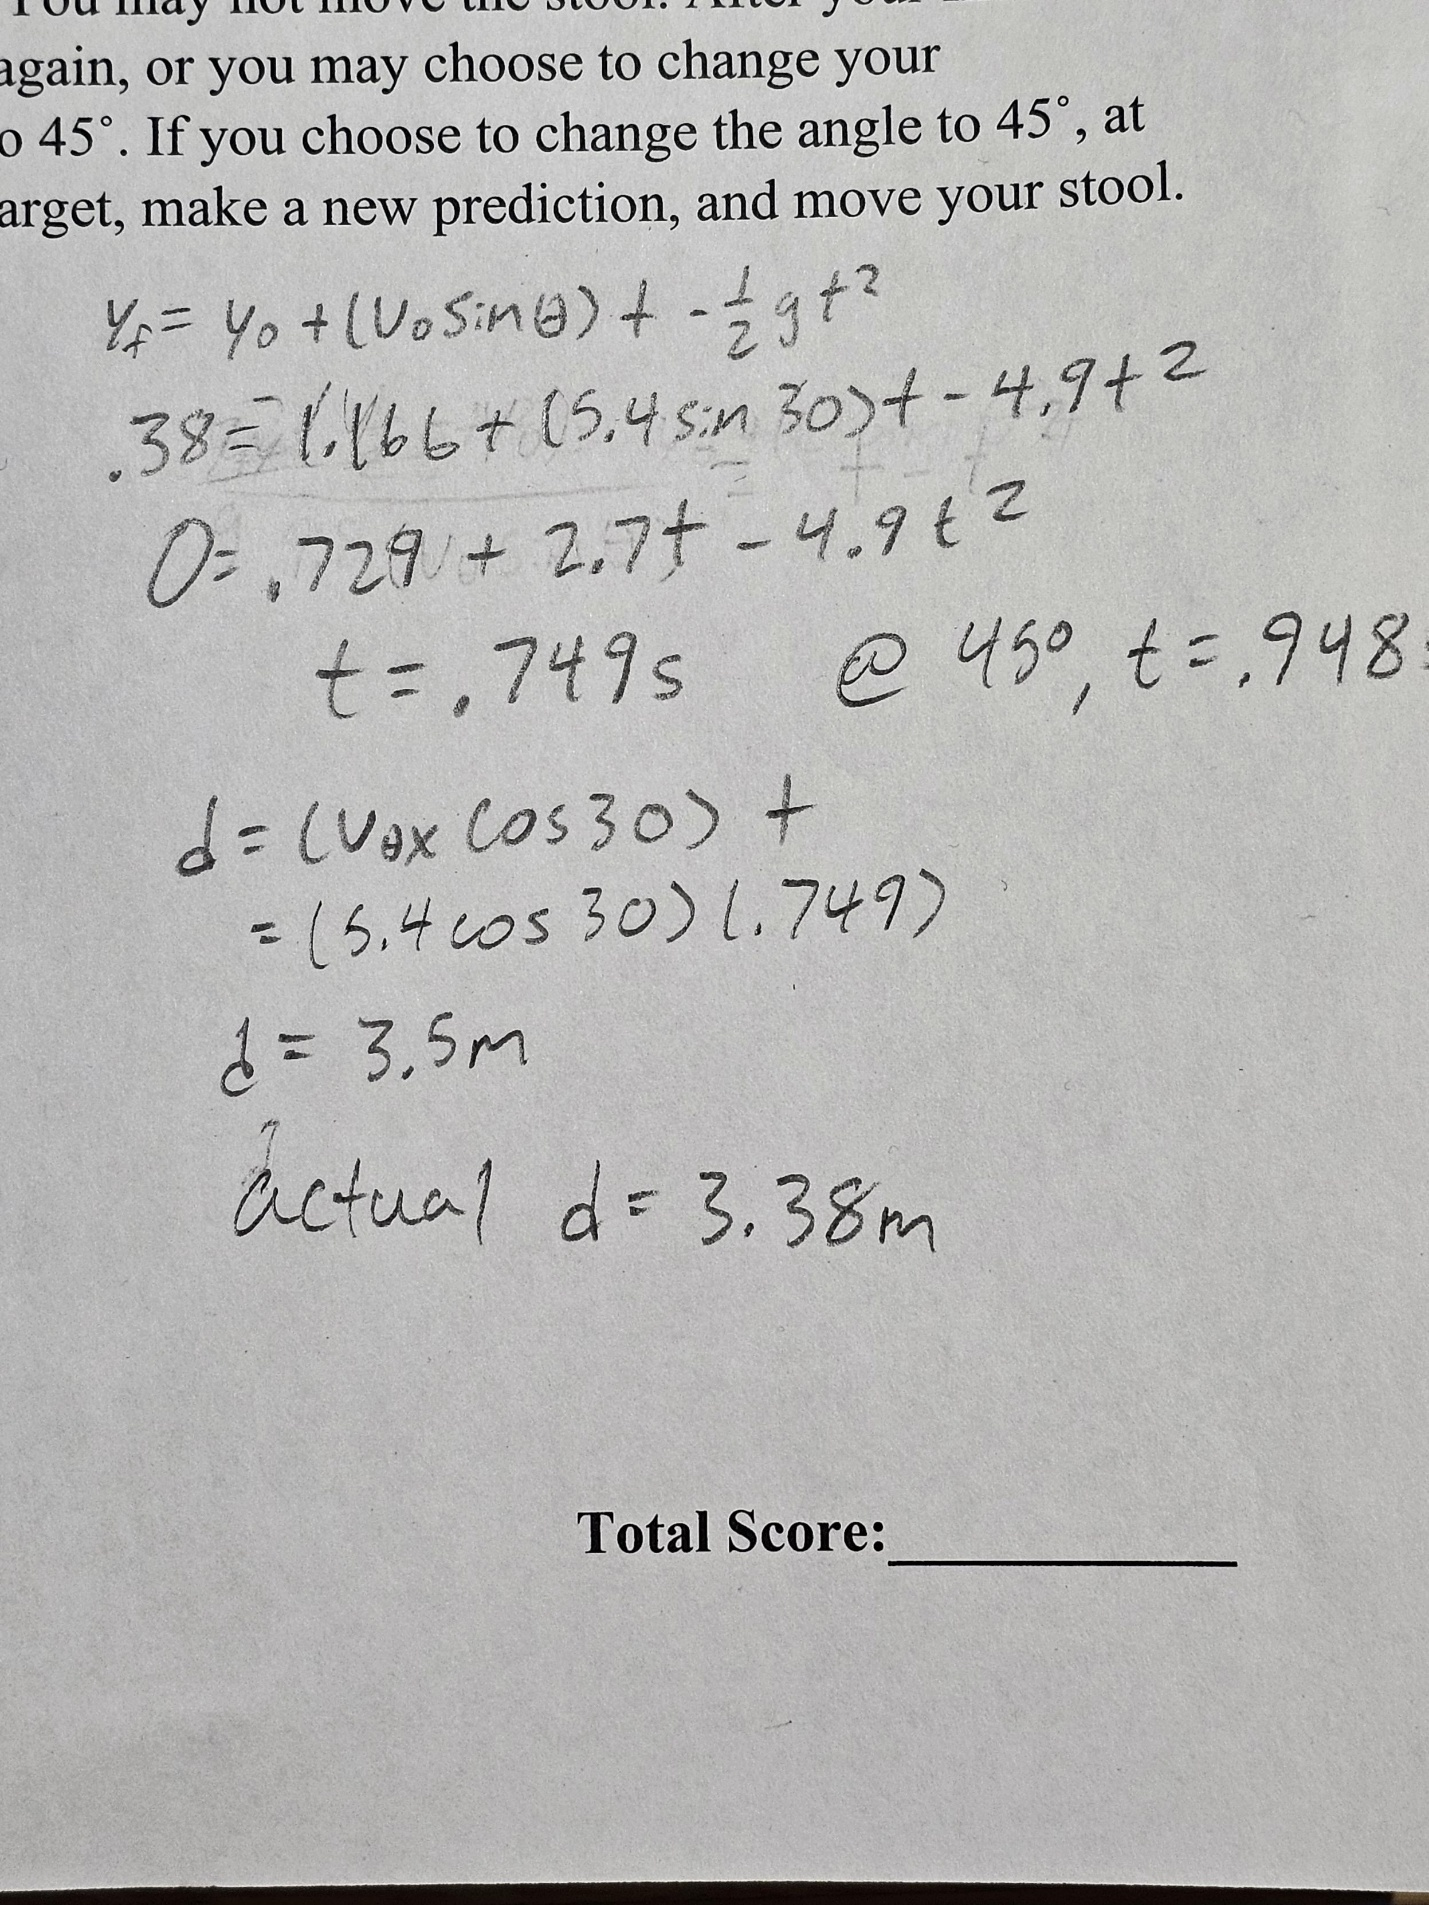 You may not move the stool. After your
again, or you may choose to change your
o 45°. If you choose to change the angle to 45°, at
arget, make a new prediction, and move your stool.
Yf = y0 + (V0 sin θ) t - 1/2 g t²
.38 = 1.166 + (5.4 sin 30) t - 4.9 t²
0 = .729 + 2.7t - 4.9 t²
t = .749s @ 45°, t = .948s
d = (V0x cos 30) t
= (5.4 cos 30) (.749)
d = 3.5m
actual d = 3.38m
Total Score: